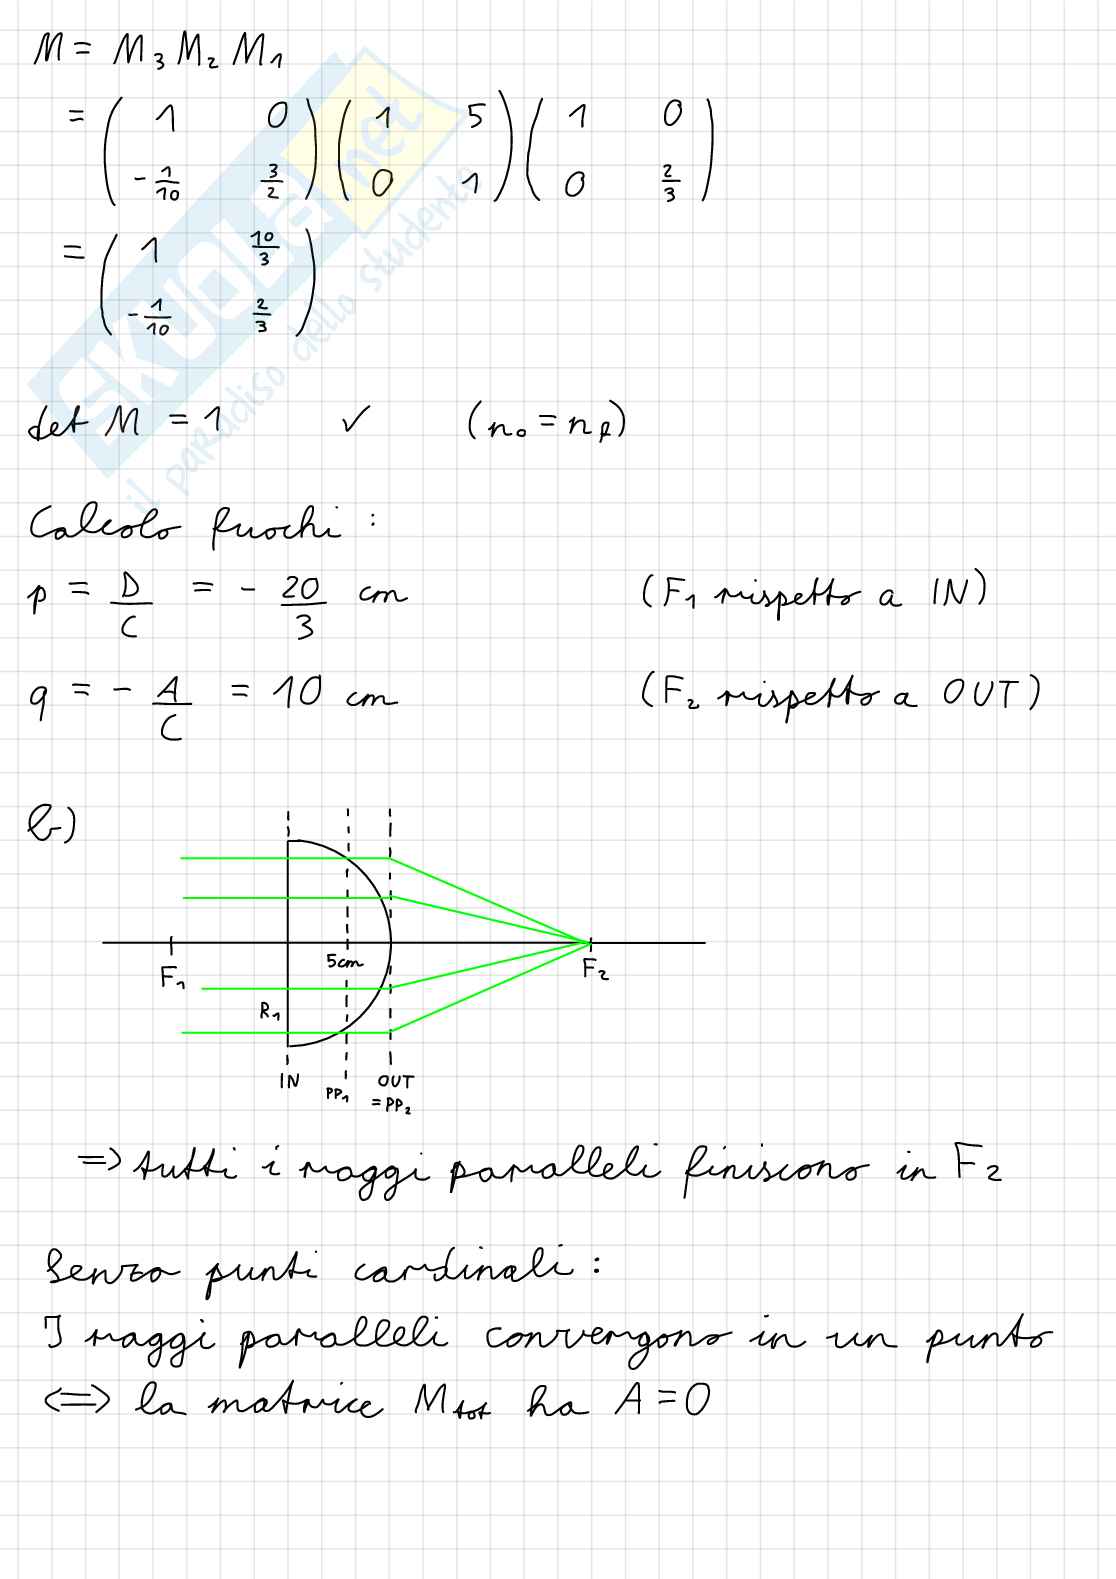 M = M₃ M₂ M₁
= ( 1 0 ; -1/10 3/2 ) ( 1 5 ; 0 1 ) ( 1 0 ; 0 2/3 )
= ( 1 10/3 ; -1/10 2/3 )
det M = 1 ✓ (n₀ = n_f)
Calcolo fuochi:
p = D/C = - 20/3 cm (F₁ rispetto a IN)
q = - A/C = 10 cm (F₂ rispetto a OUT)
b)
F₁ 5cm F₂
R₁
IN PP₁ OUT
= PP₂
=> tutti i raggi paralleli finiscono in F₂
Senza punti cardinali:
I raggi paralleli convergono in un punto
<=> la matrice M_tot ha A = 0
SKUOLA.net
il paradiso dello studente